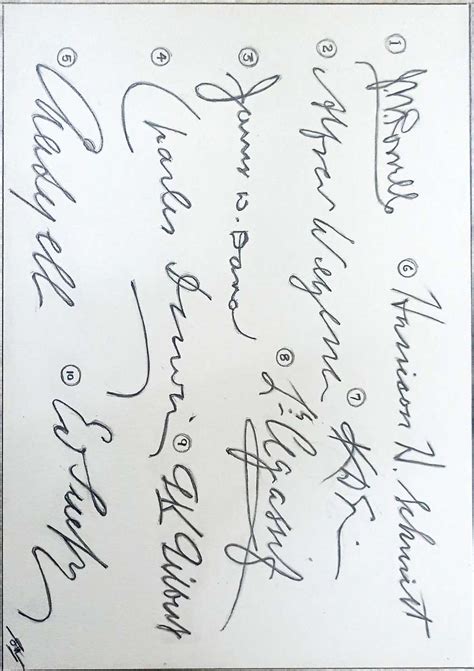 ① JWPowell
② Alfred Wegener
③ James D. Dana
④ Charles Darwin
⑤ Cha Lyell
⑥ Harrison H. Schmitt
⑦
⑧ Ls Agassiz
⑨ GK Gilbert
⑩ Ed Suess